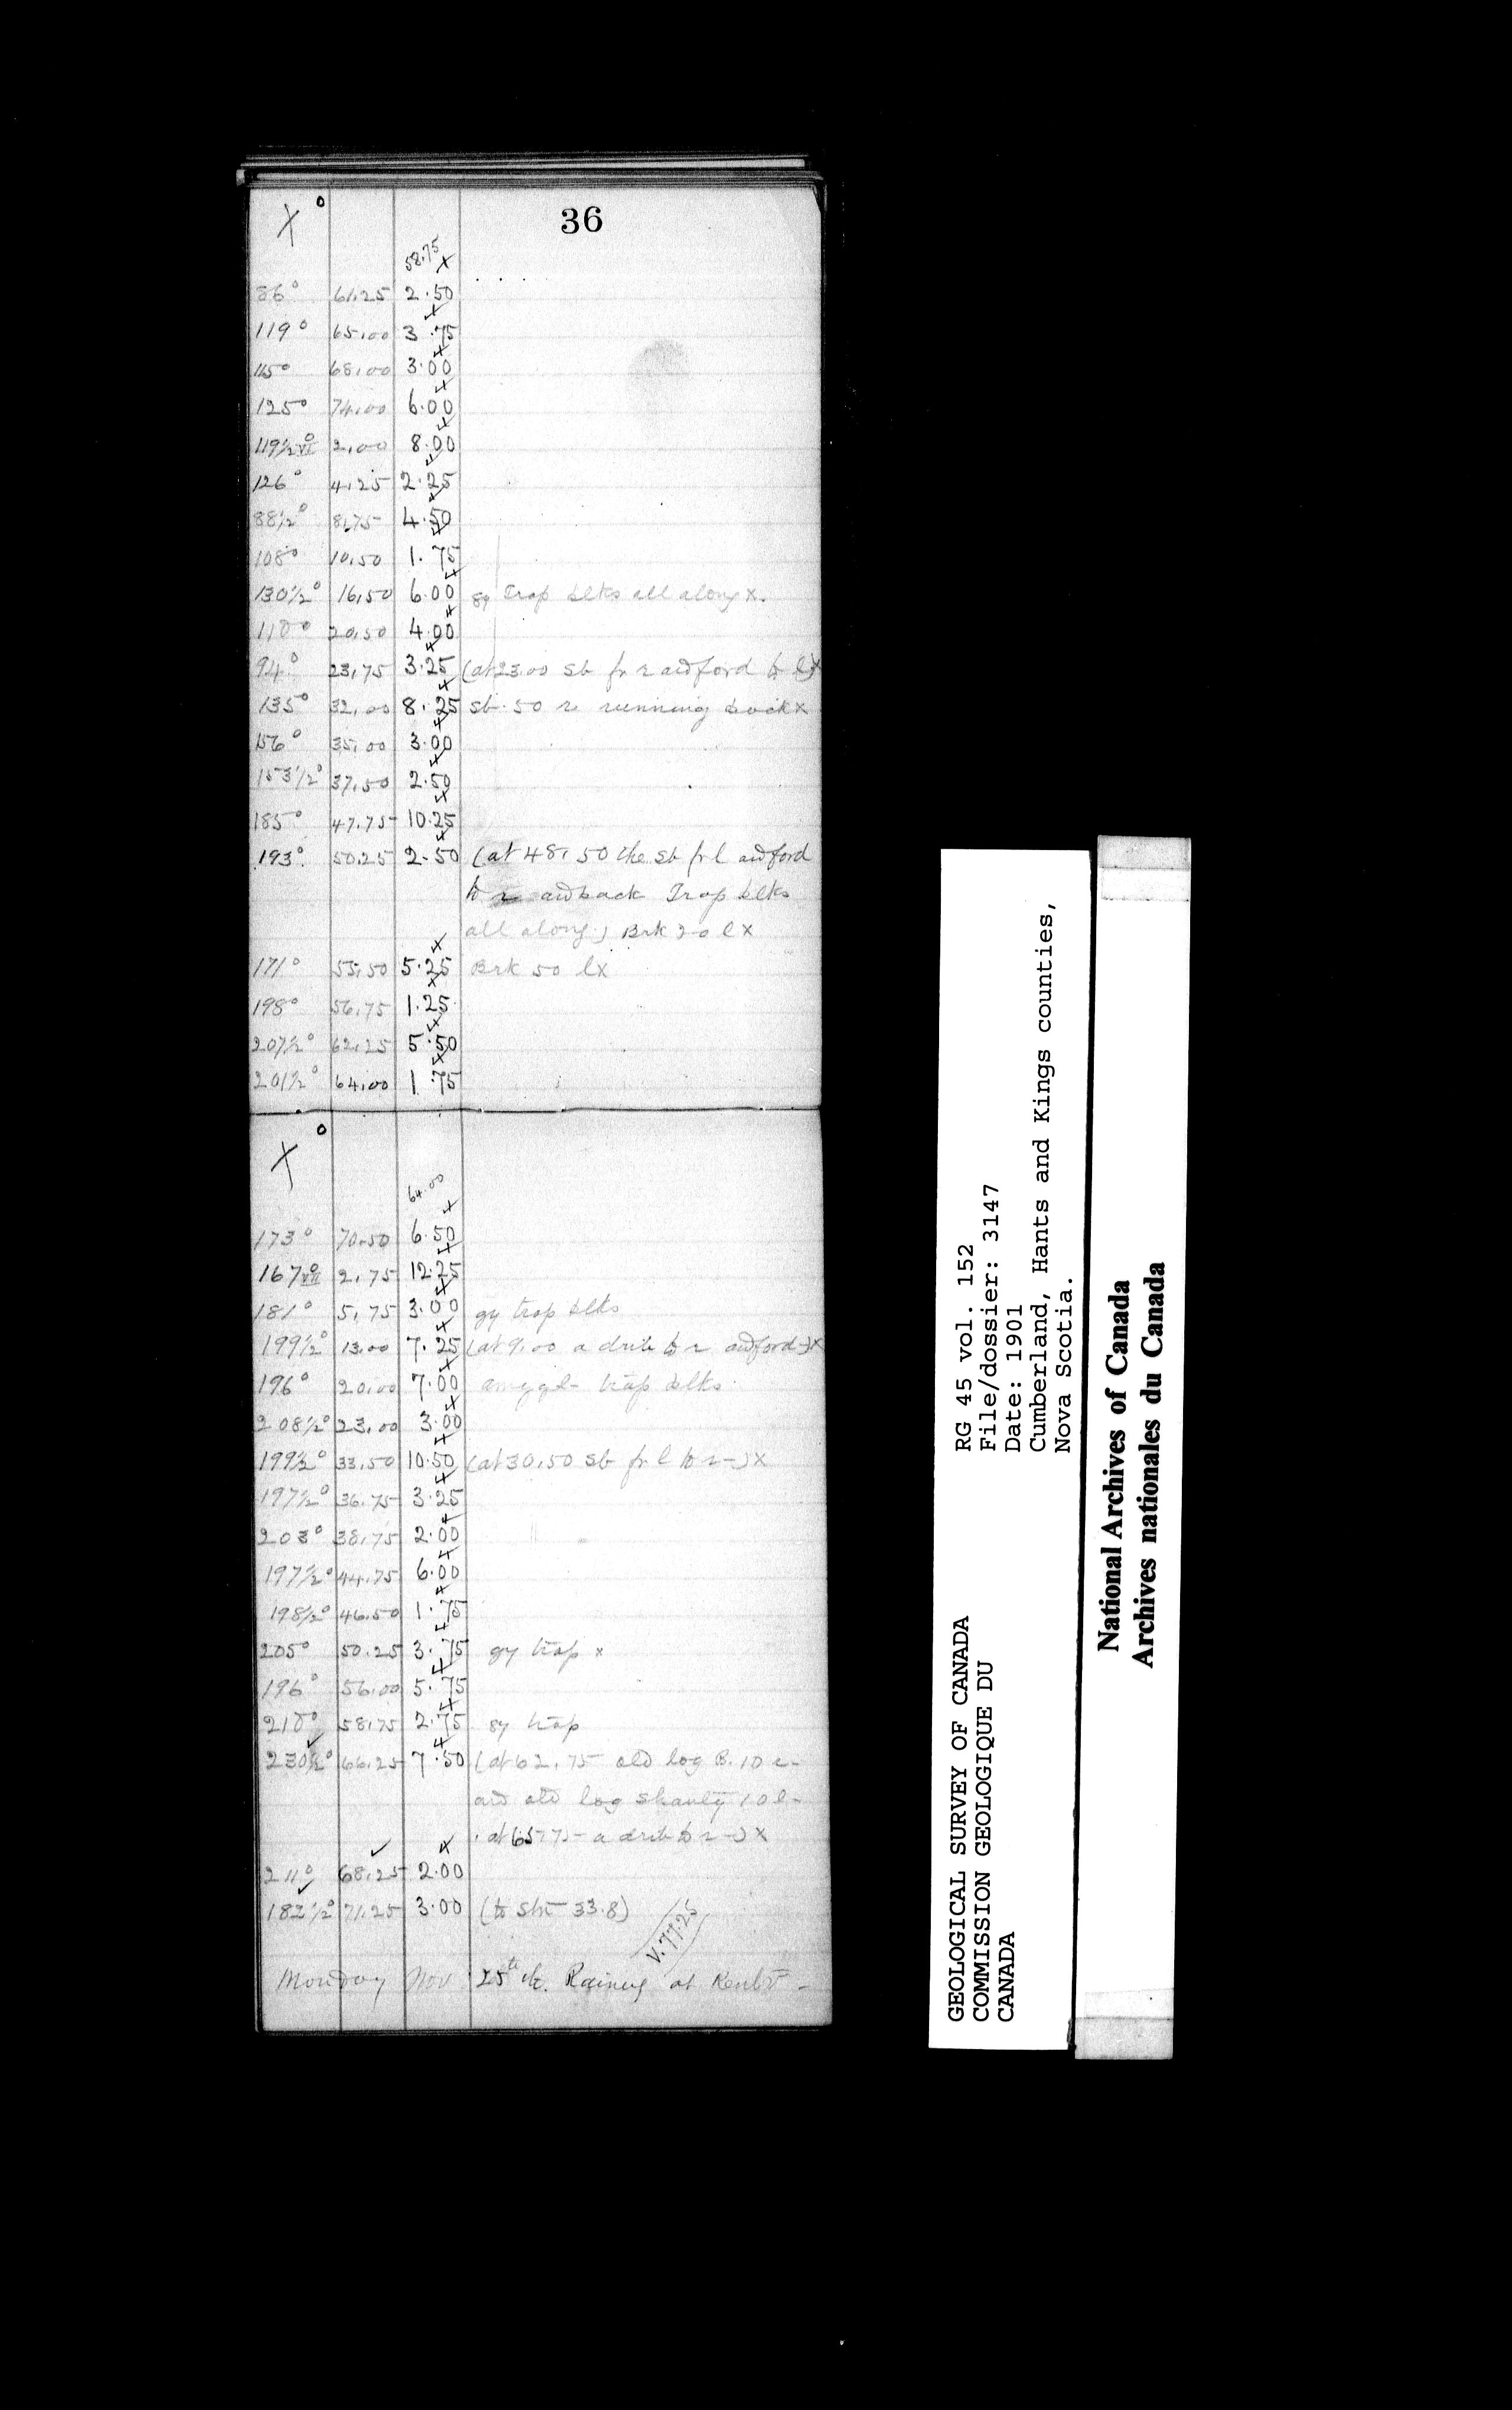 36
X °
58.75 x
86° 61.25 2.50 x
119° 65.00 3.75 x
115° 68.00 3.00 x
125° 74.00 6.00 x
119½° VI 2.00 8.00 x
126° 4.25 2.25 x
88½° 8.75 4.50 x
108° 10.50 1.75 x
130½° 16.50 6.00 gy Trap blks all along x.
110° 20.50 4.00 x
94° 23.75 3.25 (at 23.00 sb fr r and ford to l) x
135° 32.00 8.25 sb. 50 r running back x
156° 35.00 3.00 x
153½° 37.50 2.50 x
185° 47.75 10.25 x
193° 50.25 2.50 (at 48.50 the sb fr l and ford
to r and back Trap blks
all along) Brk 20 l x
171° 55.50 5.25 Brk 50 l x
198° 56.75 1.25 x
207½° 62.25 5.50 x
201½° 64.00 1.75
X °
64.00 x
173° 70.50 6.50 x
167° VII 2.75 12.25 x
181° 5.75 3.00 gy trap blks
199½° 13.00 7.25 (at 9.00 a drib to r and ford -) x
196° 20.00 7.00 amygdl- trap blks
208½° 23.00 3.00 x
199½° 33.50 10.50 (at 30.50 sb fr l to r -) x
197½° 36.75 3.25 x
203° 38.75 2.00 x
197½° 44.75 6.00 x
198½° 46.50 1.75 x
205° 50.25 3.75 gy trap x
196° 56.00 5.75 x
210° 58.75 2.75 gy trap
230½° 66.25 7.50 (at 62.75 old log B. 10 r-
and old log shanty 10 l-
at 65.75 - a drib to r -) x
211° 68.25 2.00
182½° 71.25 3.00 (to Stn 33.8)
V.77.25
Monday Nov. 25th Raining at
GEOLOGICAL SURVEY OF CANADA
COMMISSION GEOLOGIQUE DU
CANADA
RG 45 vol. 152
File/dossier: 3147
Date: 1901
Cumberland, Hants and Kings counties,
Nova Scotia.
National Archives of Canada
Archives nationales du Canada